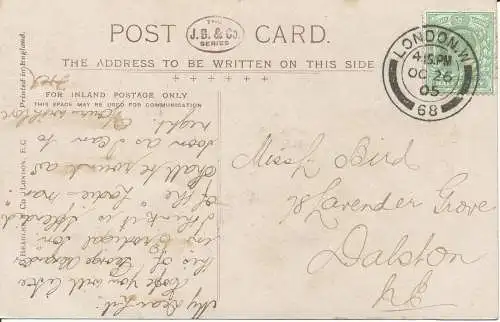 POST CARD.
THE
J.B. & Co.
SERIES
THE ADDRESS TO BE WRITTEN ON THIS SIDE
FOR INLAND POSTAGE ONLY
THIS SPACE MAY BE USED FOR COMMUNICATION
Printed in England.
J. BEAGLES & CO. LONDON, E.C
LONDON.W
4.15.PM
OC 26
05
68
Miss L. Bird
78 Lavender Grove
Dalston
N.E
My Dear Lil.
Hope you will like
this of George
as Prodigal Son.
I think it is splendid
of the "Ladies man"
shall be round as
soon as I can to
night.